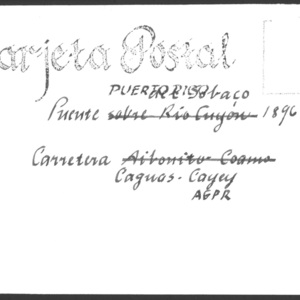 Tarjeta Postal
PUERTO RICO
del Tabaco
Puente sobre Rio Cuyón 1896
Carretera Aibonito-Coamo
Caguas-Cayey
AGPR